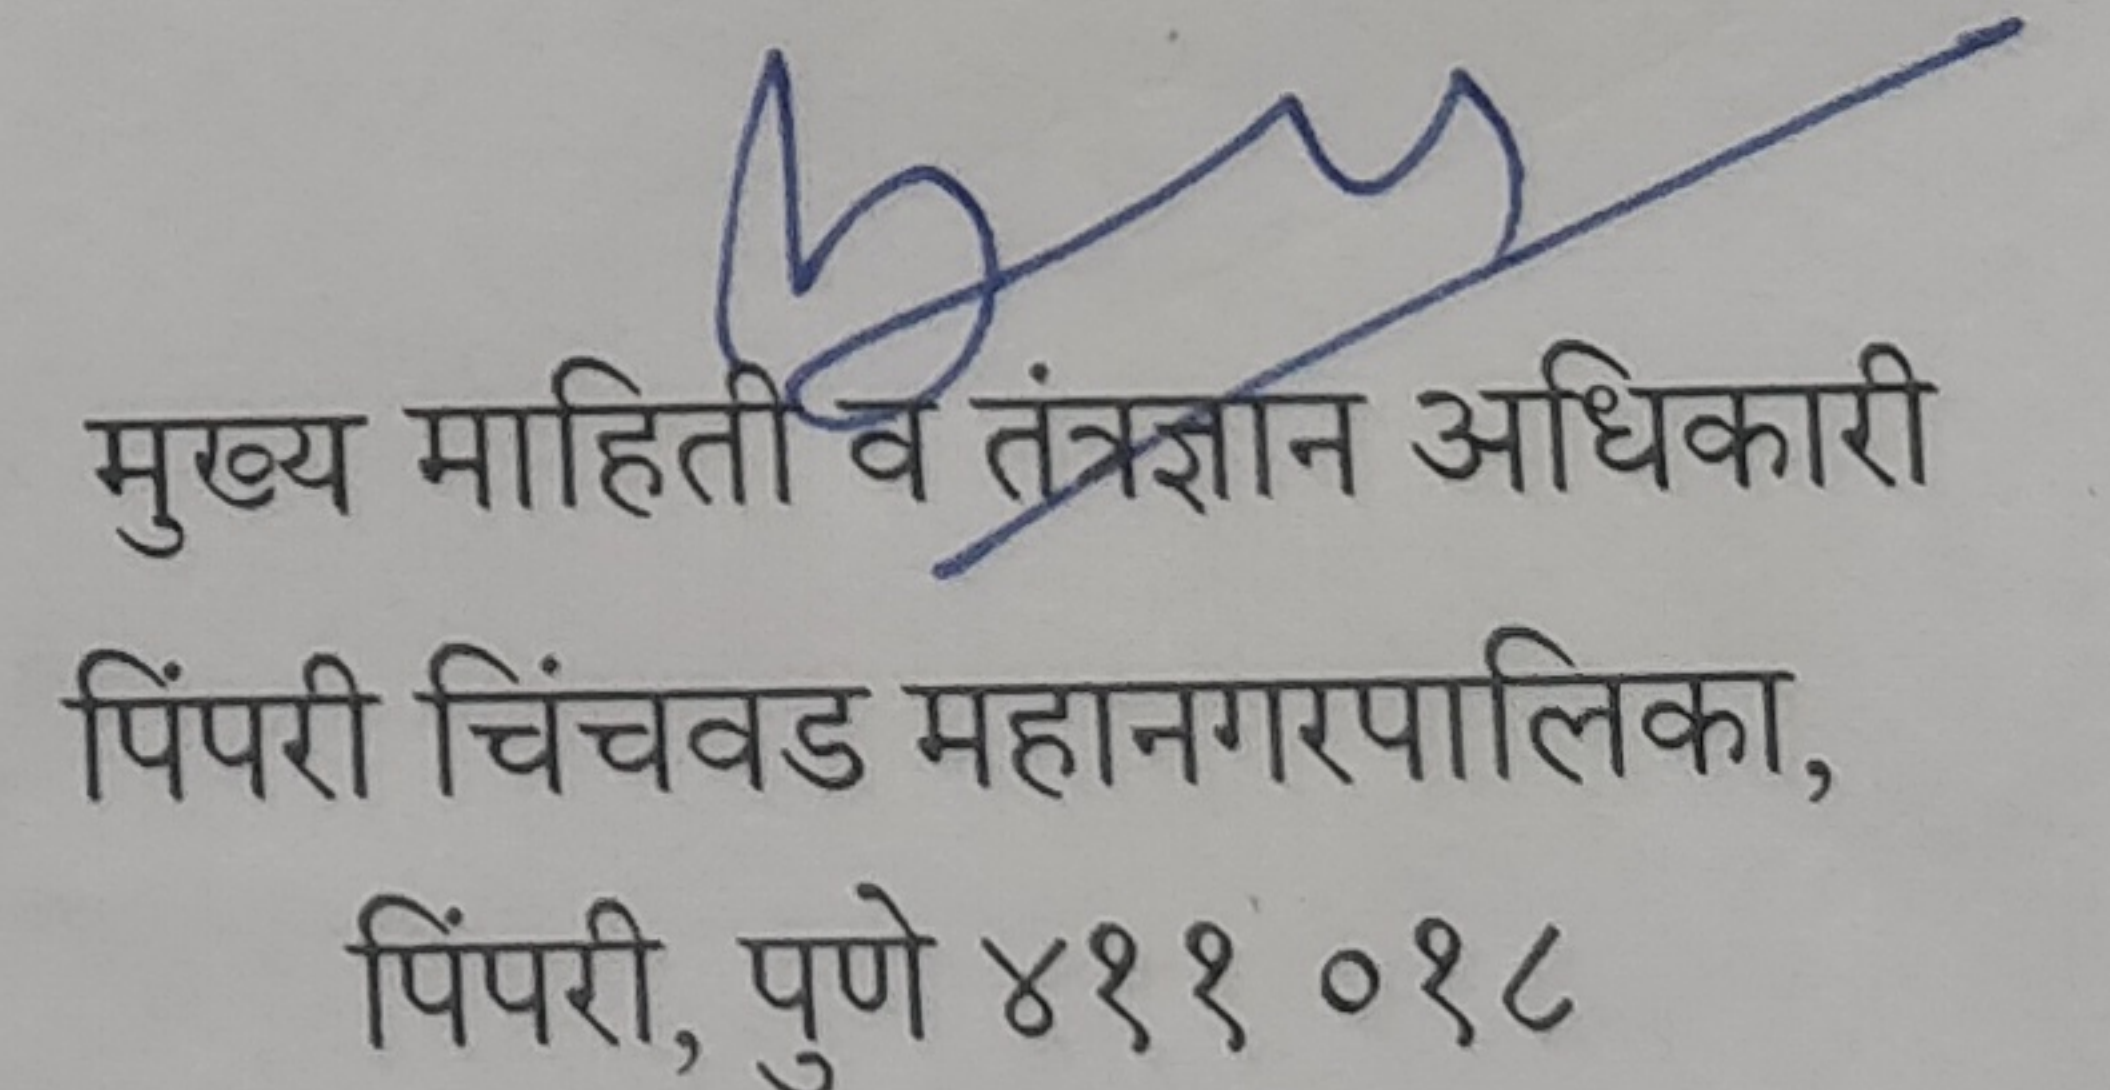 मुख्य माहिती व तंत्रज्ञान अधिकारी
पिंपरी चिंचवड महानगरपालिका,
पिंपरी, पुणे ४११ ०१८